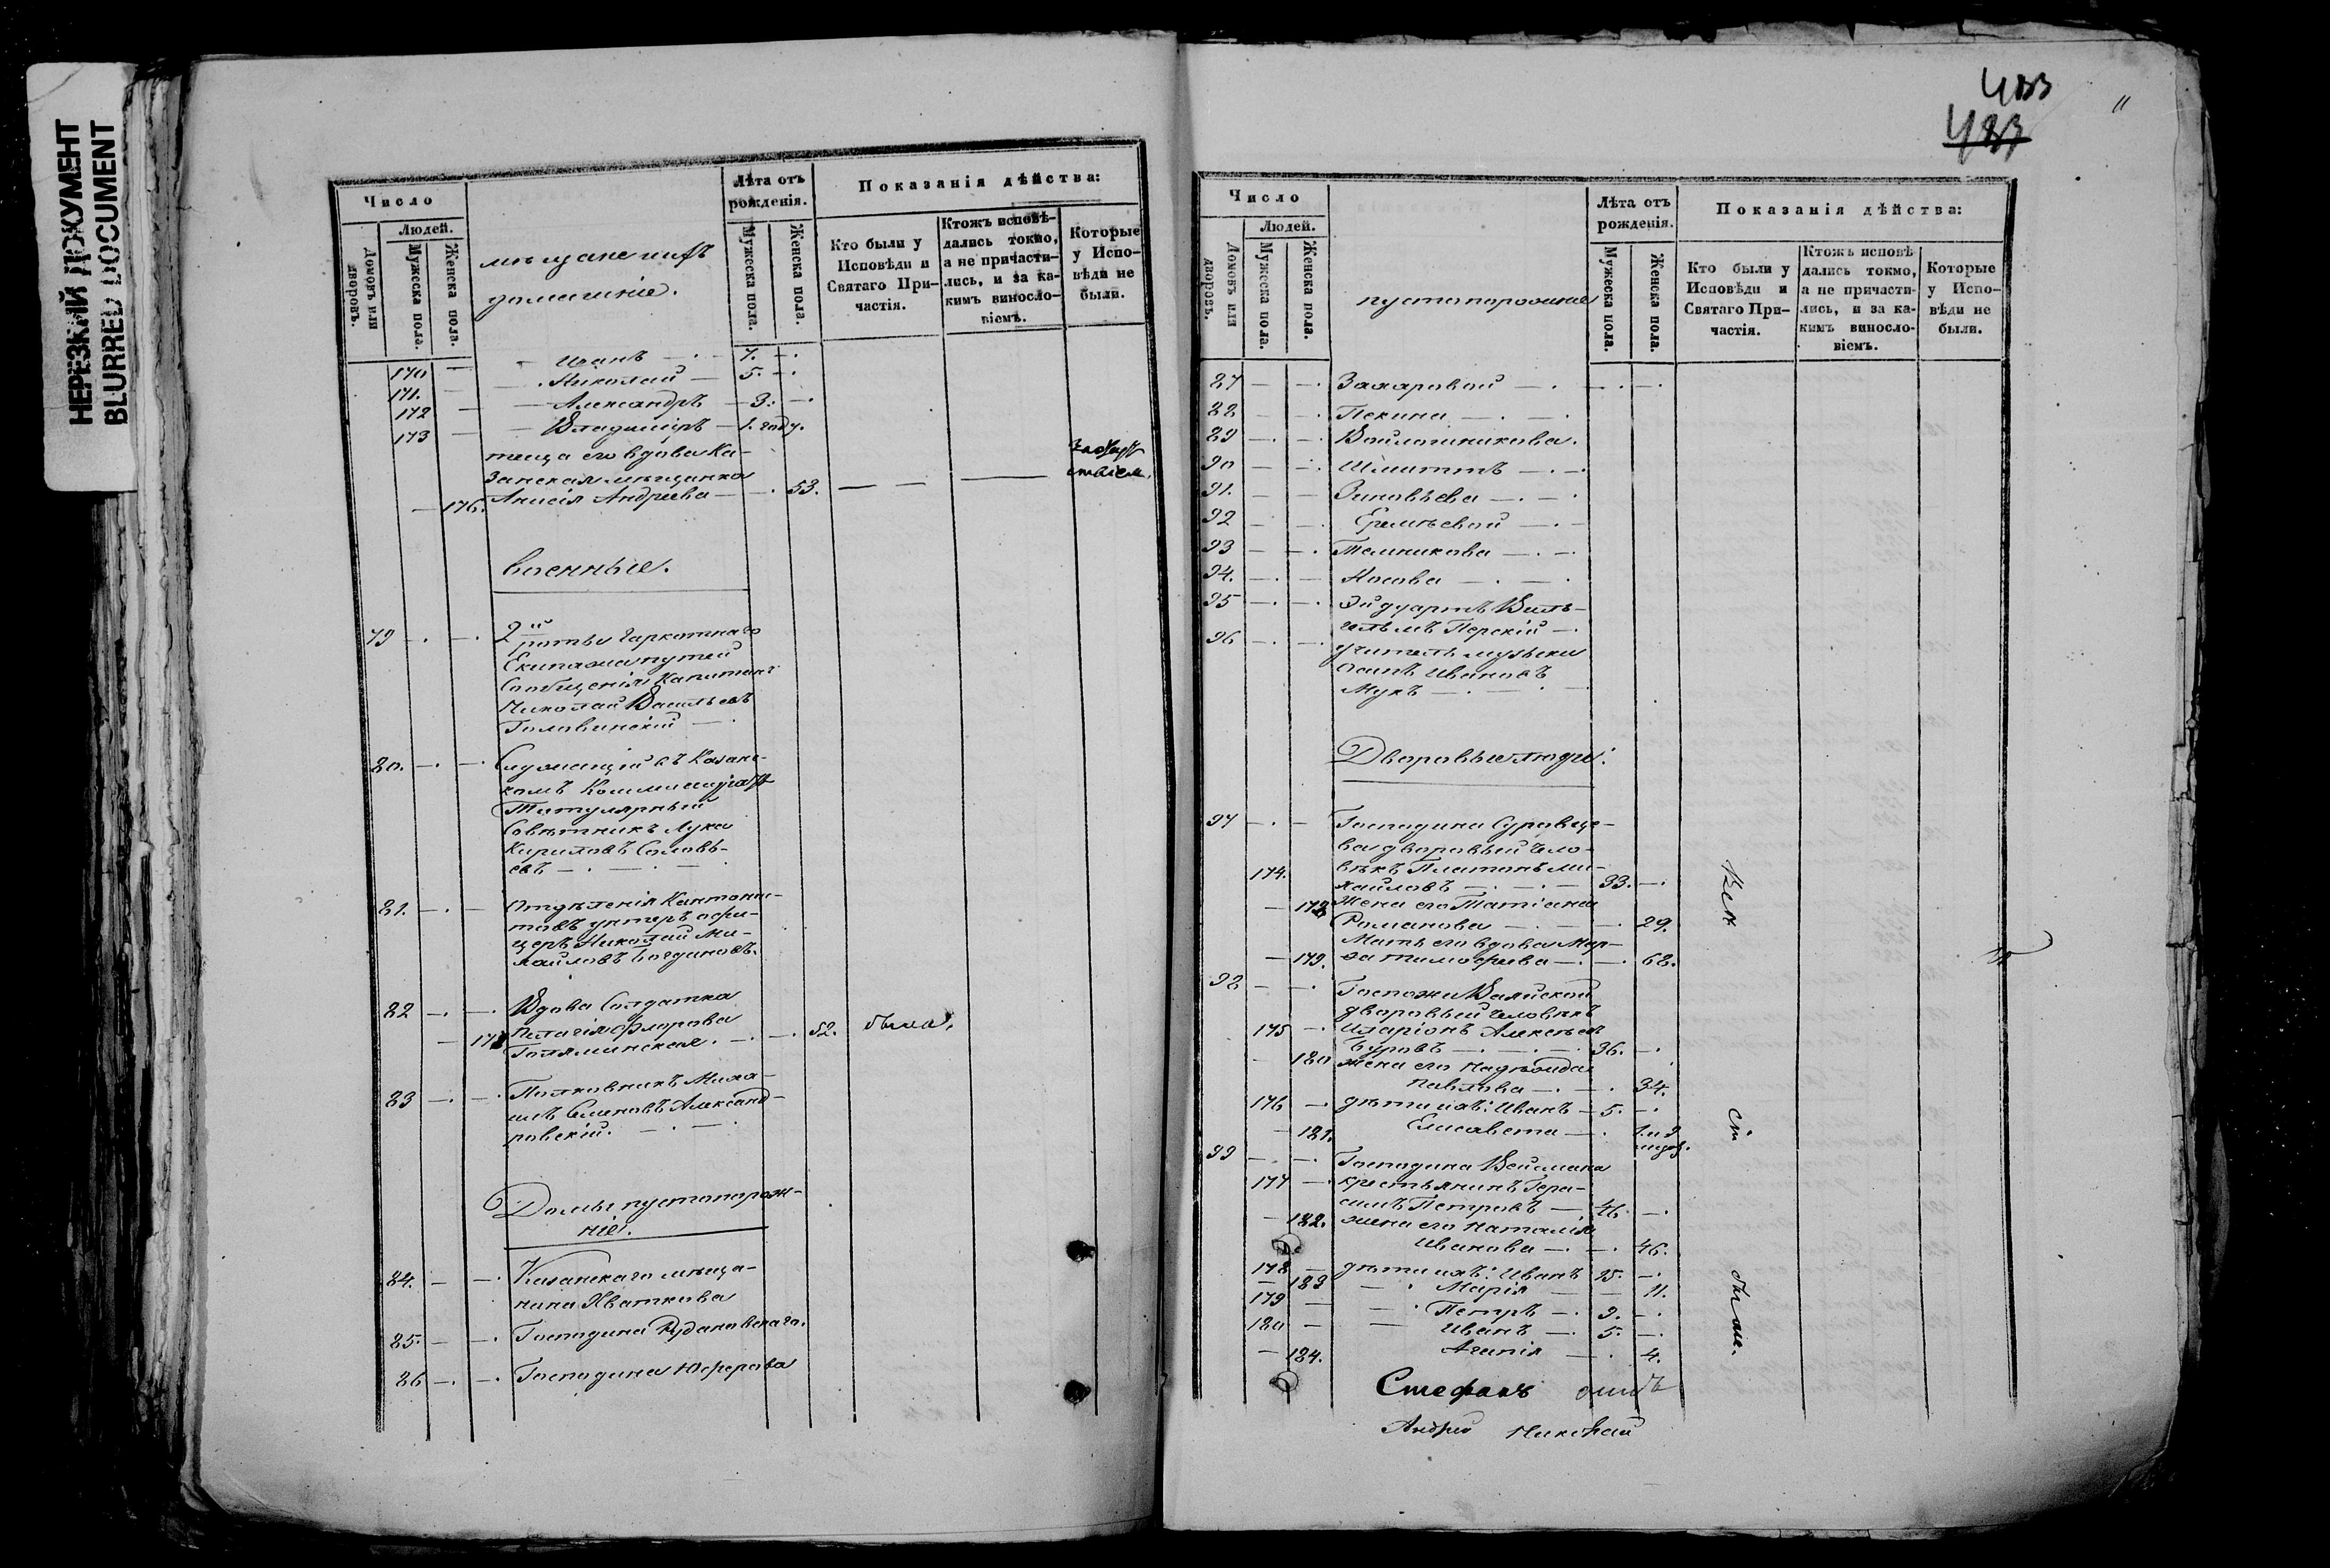 НЕРЕЗКИЙ ДОКУМЕНТ
BLURRED DOCUMENT
Число
Людей.
Домовъ или дворовъ.
Мужеска пола.
Женска пола.
мѣщане и ихъ
домашніе.
Лѣта отъ рожденія.
Мужеска пола.
Женска пола.
Показанія дѣйства:
Кто были у Исповѣди и Святаго Причастія.
Ктожъ исповѣдались токмо, а не причастились, и за какимъ винословіемъ.
Которые у Исповѣди не были.
170 — — Иванъ — 7. —
171. — — Николай — 5. —
172 — — Александръ — 3. —
173 — — Владиміръ — 1. году.
теща его вдова Ка-
занская мѣщанка
— 176. Анисія Андреева — 53. — —
военные.
79 — — 2й роты Гаркотнаго
Екипажа путей
Сообщенія Капитанъ
Николай Васильевъ
Головинскій —
80. — — Служащій въ Казанс-
комъ
Титулярный
Совѣтникъ Лука
Кириловъ Соловь-
евъ — —
81. — — Отдѣленія Кантони-
товъ унтеръ офи-
церъ Николай Ми-
хайловъ Богдановъ.
82 — — Вдова Солдатка
Пелагія Флорова
— 52. была.
83 — — Полковникъ Миха-
илъ Семеновъ Александ-
ровскій. — —
Домы пустопорож-
ніе.
84. — — Казанскаго мѣща-
нина Хваткова
85. — — Господина
86 — — Господина Юферова
433
433
11
Число
Людей.
Домовъ или дворовъ.
Мужеска пола.
Женска пола.
пустопорожніе
Лѣта отъ рожденія.
Мужеска пола.
Женска пола.
Показанія дѣйства:
Кто были у Исповѣди и Святаго Причастія.
Ктожъ исповѣдались токмо, а не причастились, и за какимъ винословіемъ.
Которые у Исповѣди не были.
87 — — Захаровой — —
88 — — Пекина — —
89 — — Войлошникова.
90 — — Шмиттъ — —
91. — — Зиновьева — —
92 — — Еремѣевой — —
93 — — Темникова — —
94. — — Носова — —
95 — — Эйдуартъ Виль-
гельмъ Перскій —
96 — — учитель музыки
Осипъ Ивановъ
Мукъ — —
Дворовые люди:
97 — — Господина Суровце-
ва дворовый чело-
174. вѣкъ Платонъ Ми-
хайловъ — — 33. —
— 178 Жена его Татіана
Романова — — 29.
Мать его вдова Мар-
— 179. ѳа Тимофеева — — 68.
98 — — Госпожи
дворовый человѣкъ
175 — Иларіонъ Алексѣевъ
Буровъ — — 36. —
— 180 жена его Надежда
Павлова — — 34.
176 — дѣти ихъ: Иванъ — 5. —
— 181. Елисавета — 1. и 9
мѣс.
99 — — Господина Веймана
177 — крестьянинъ Гера-
симъ Петровъ — 46. —
— 182. жена его Наталія
Иванова — — 46.
178 — дѣти ихъ: Иванъ 15. —
— 183 — Марія — — 11.
179 — — Петръ — 9. —
180 — — Иванъ — 5. —
— 184. Агапія — — 4.
были.
Стефанъ
Андрей Николай